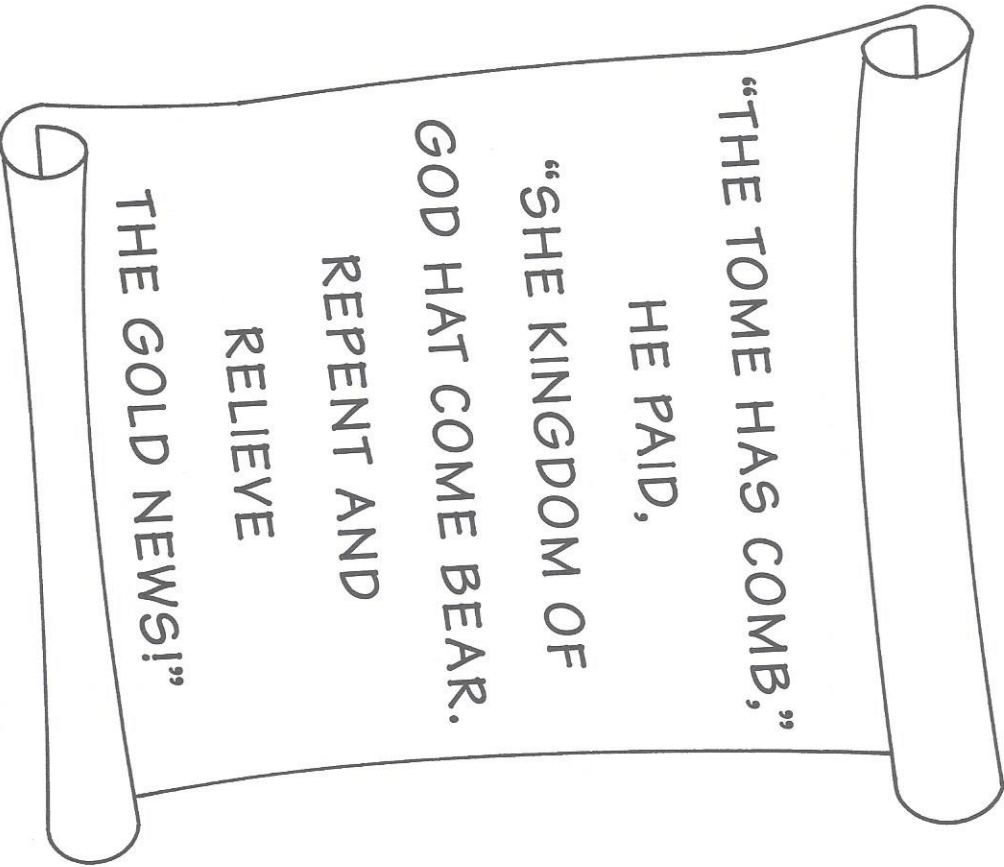 “THE TOME HAS COMB,”
HE PAID,
“SHE KINGDOM OF
GOD HAT COME BEAR.
REPENT AND
RELIEVE
THE GOLD NEWS!”